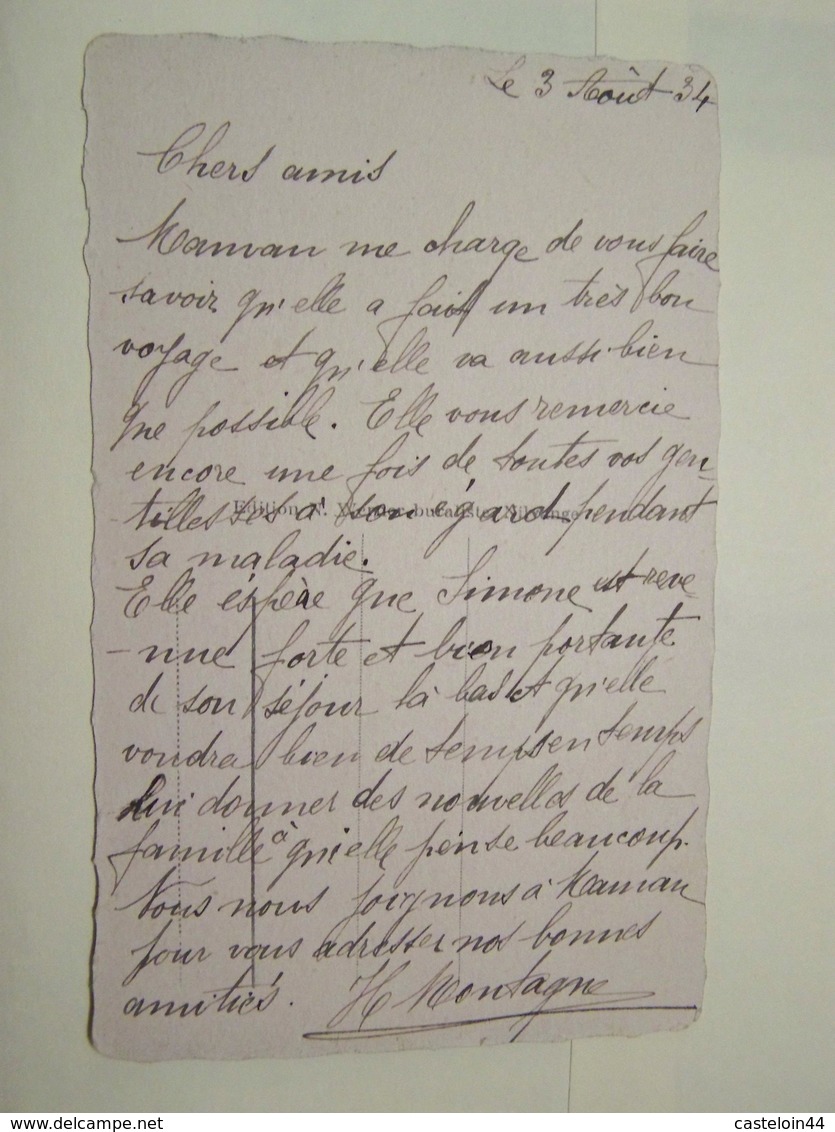 Le 3 Août 34
Chers amis
Maman me charge de vous faire
savoir qu'elle a fait un très bon
voyage et qu'elle va aussi bien
que possible. Elle vous remercie
encore une fois de toutes vos gen-
tillesses à son égard pendant
Edition N.
sa maladie.
Elle éspère que Simone est reve-
-nue forte et bien portante
de son séjour là bas et qu'elle
voudra bien de temps en temps
lui donner des nouvelles de la
famille à qui elle pense beaucoup.
Nous nous joignons à Maman
pour vous adresser nos bonnes
amitiés. H Montagne
www.delcampe.net
casteloin44